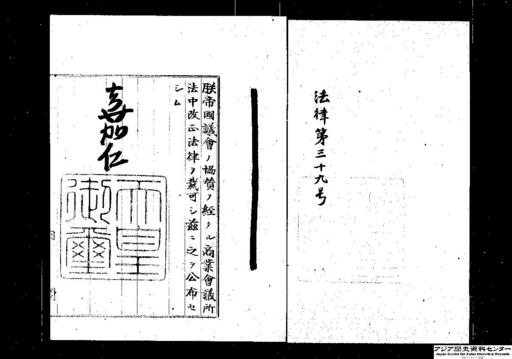 法律第三十九号
朕帝國議會ノ協賛ヲ經タル商業會議所
法中改正法律ヲ裁可シ茲ニ之ヲ公布セ
シム
嘉仁
天皇
御璽
アジア歴史資料センター
Japan Center for Asian Historical Records